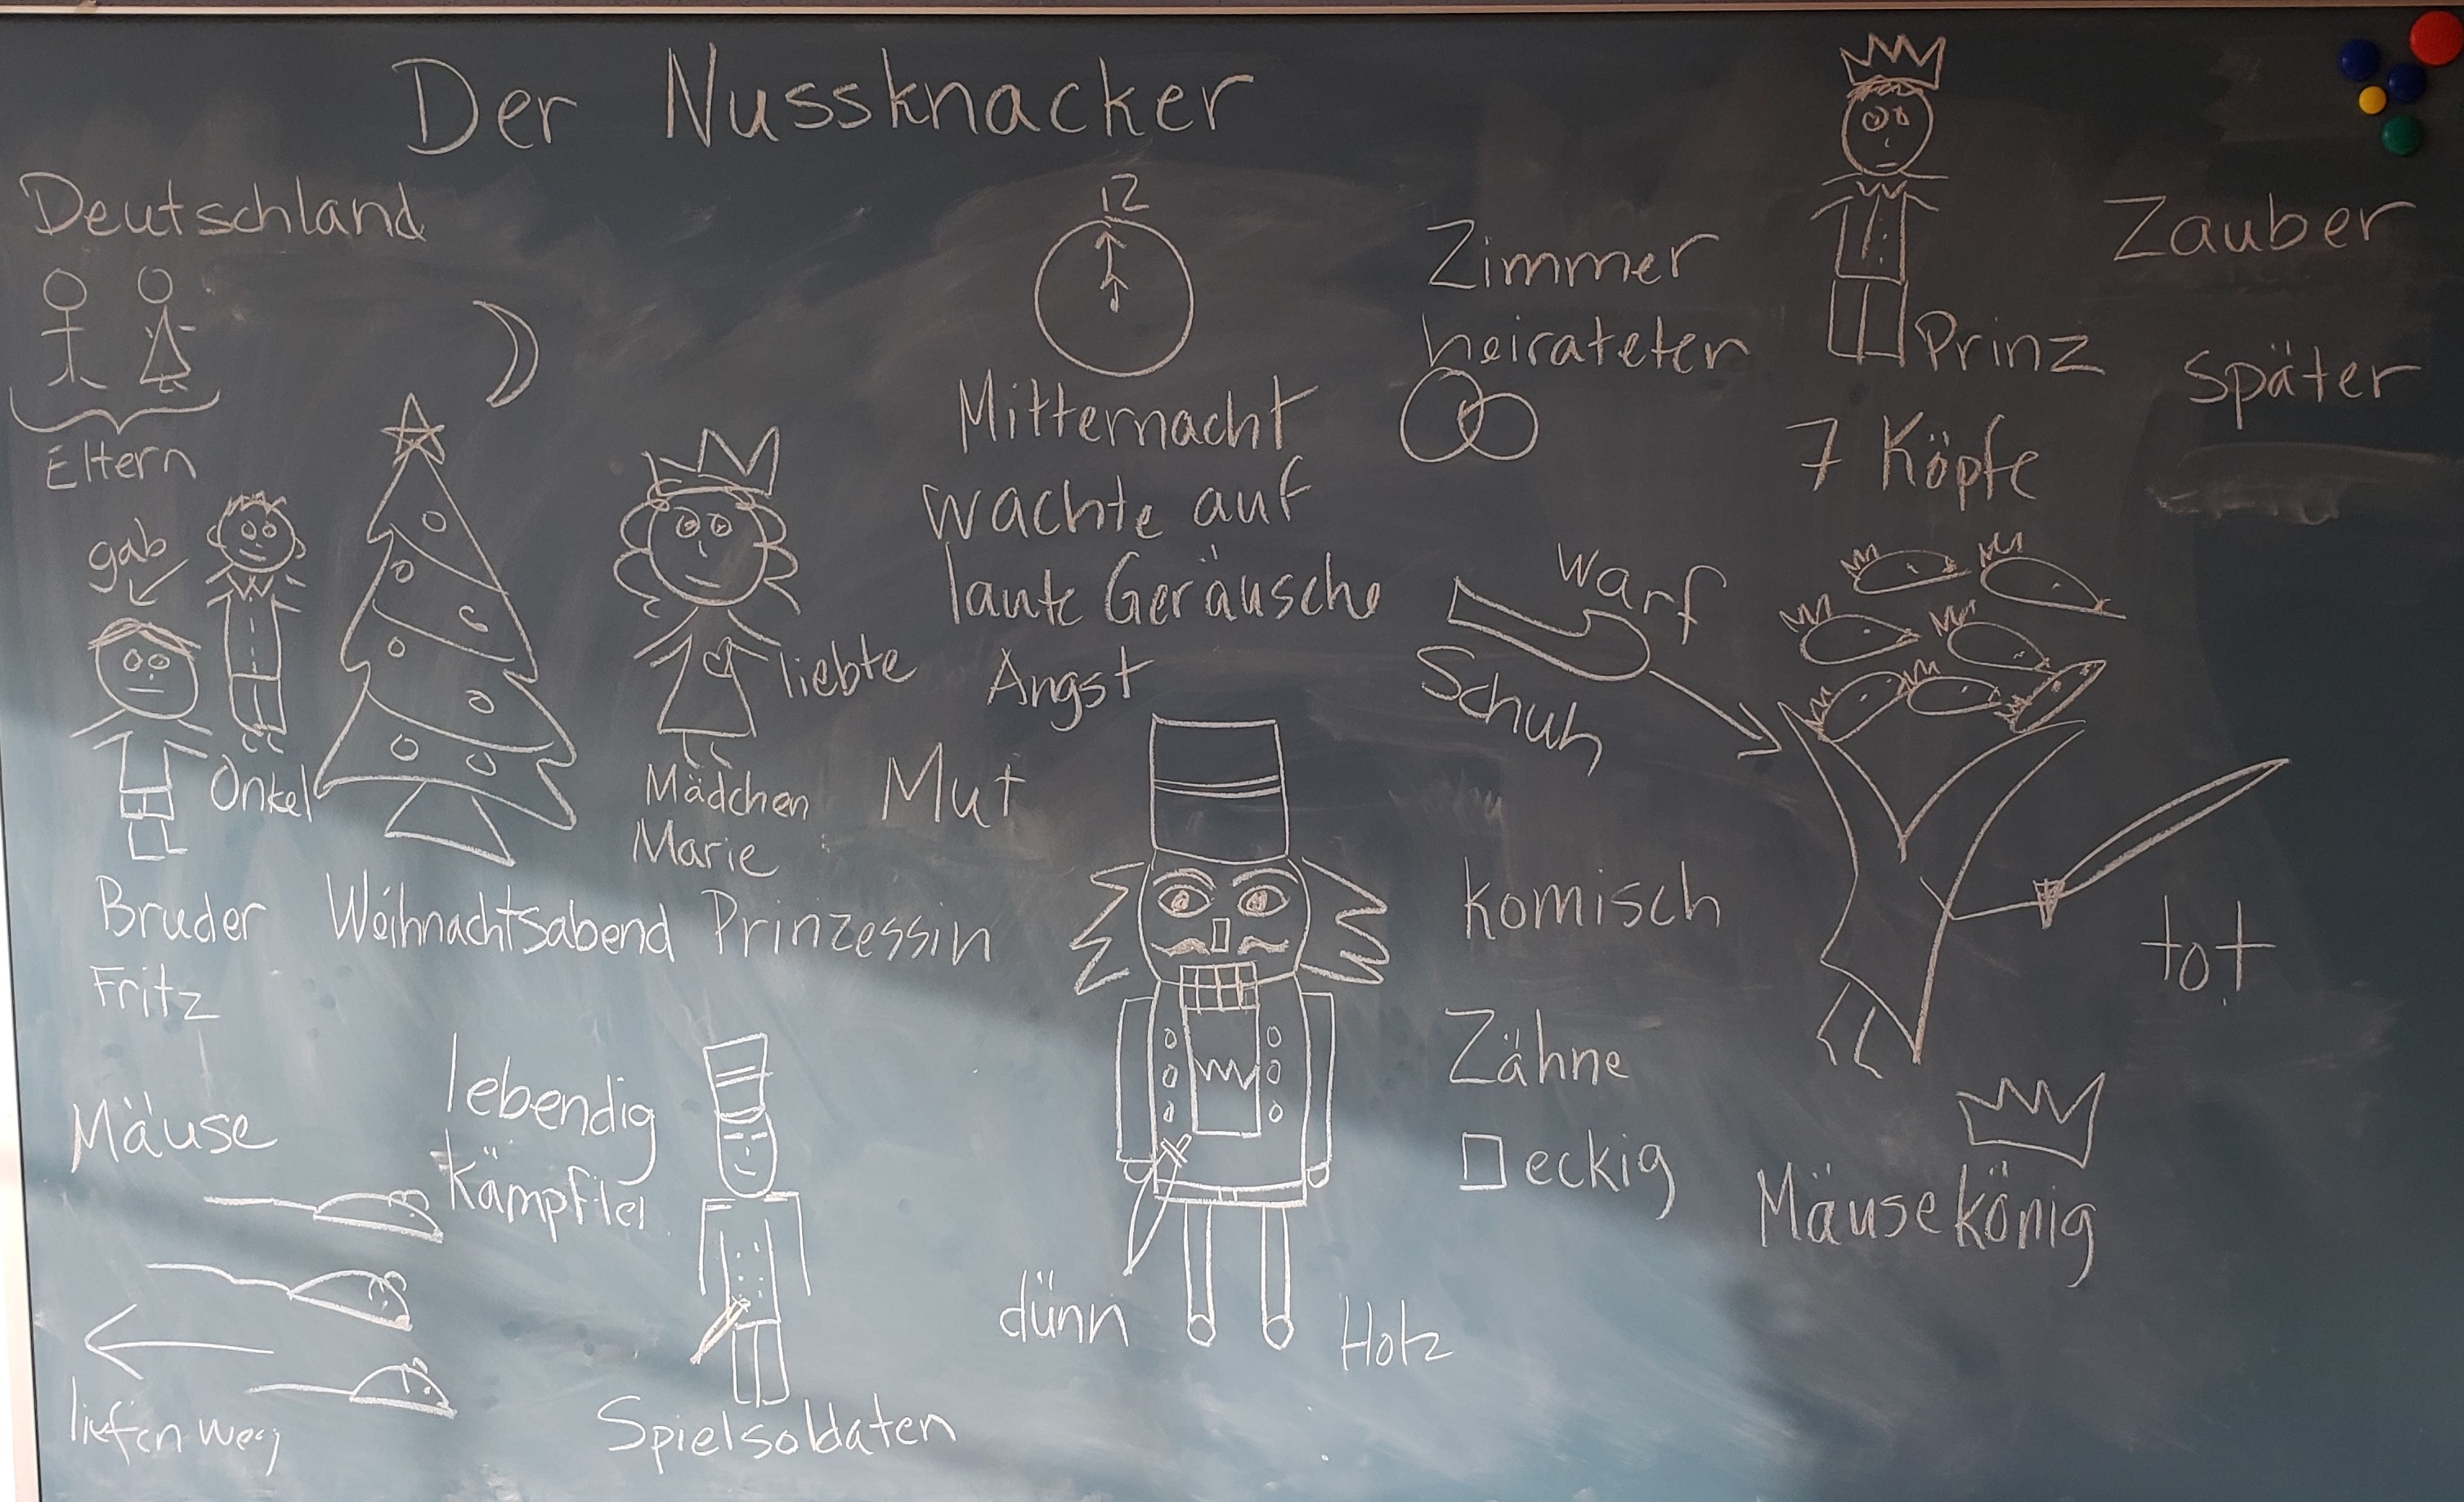 Der Nussknacker
Deutschland
Eltern
gab
Onkel
Bruder
Fritz
Weihnachtsabend
liebte
Mädchen
Marie
Prinzessin
12
Mitternacht
wachte auf
laute Geräusche
Angst
Mut
Zimmer
heirateten
Prinz
Zauber
später
7 Köpfe
warf
Schuh
komisch
Zähne
eckig
tot
Mäusekönig
Mäuse
lebendig
liefen weg
Spielsoldaten
dünn
Holz